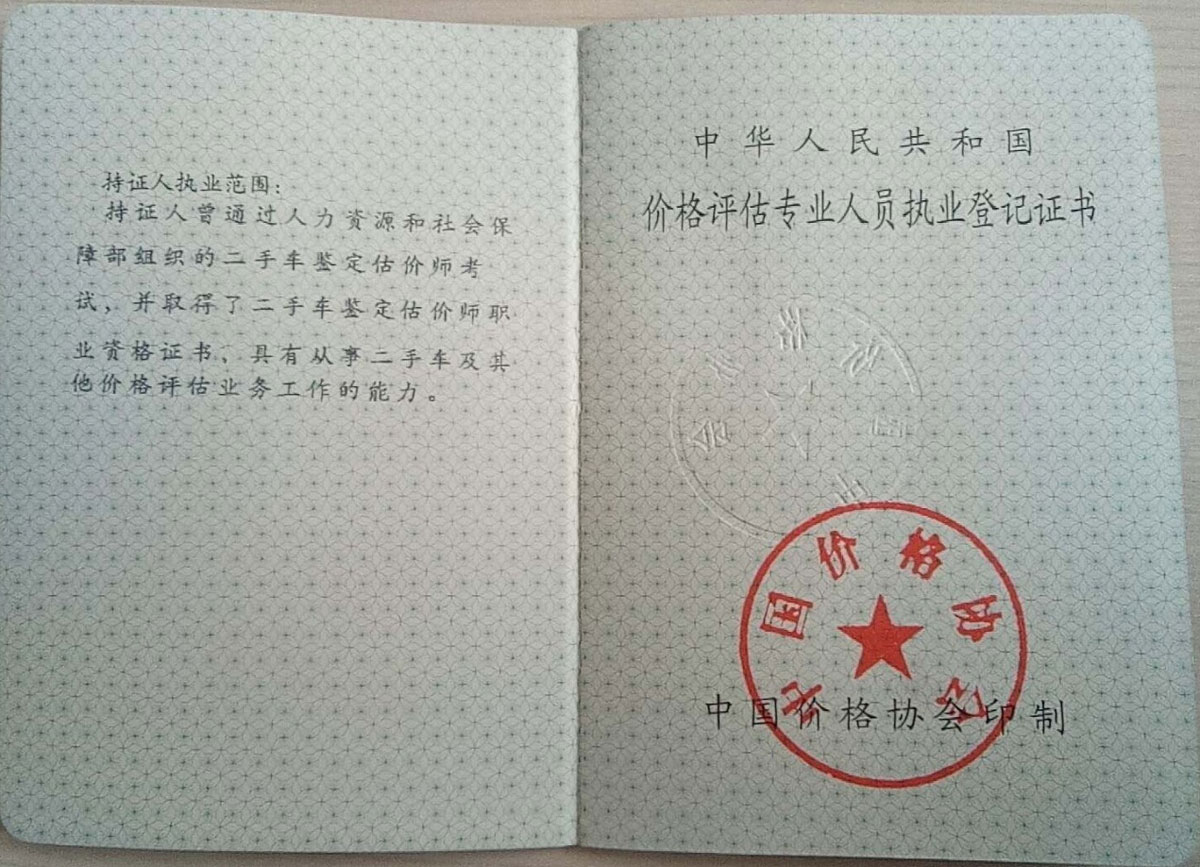 持证人执业范围：
持证人曾通过人力资源和社会保
障部组织的二手车鉴定估价师考
试，并取得了二手车鉴定估价师职
业资格证书、具有从事二手车及其
他价格评估业务工作的能力。
中华人民共和国
价格评估专业人员执业登记证书
中国价格协会
中国价格协会印制